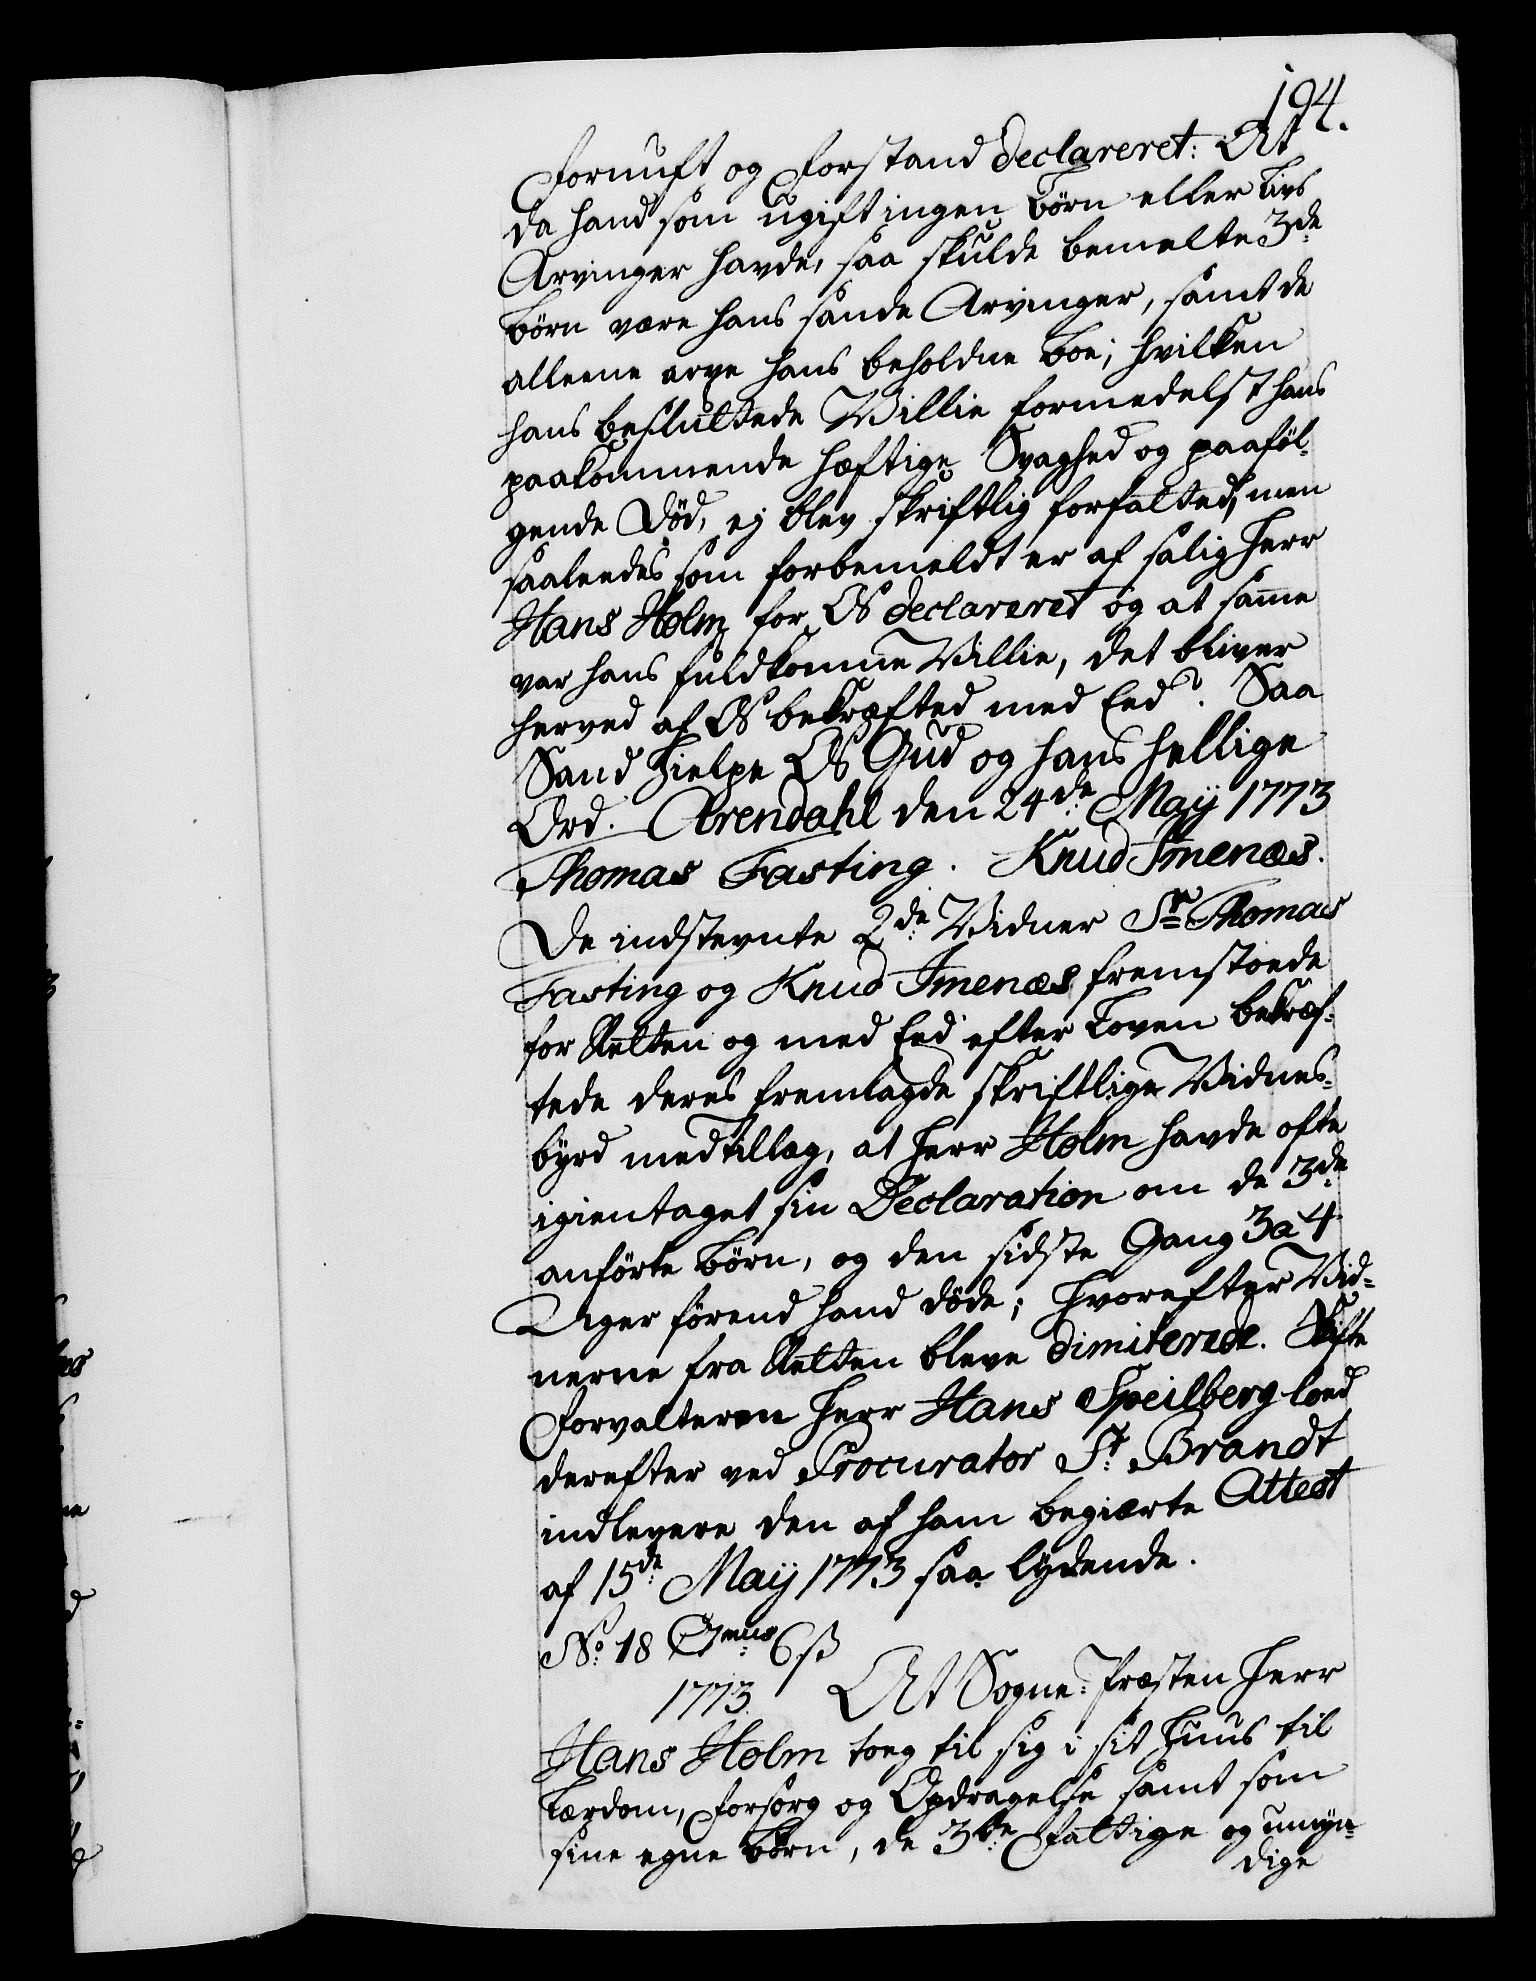 194.
Fornuft og Forstand declareret: At
da hand som ugift ingen Børn eller Livs
Arvinger havde, saa skulde bemelte 3de
Børn være hans sande Arvinger, samt de
alleene arve hans beholdne Boe; hvilken
hans besluttede Villie formedelst hans
paakommende hæftige Svaghed og paaføl-
gende Død, ej blev skriftlig forfatted, men
saaleedes som forbemeldt er af salig Herr
Hans Holm for Os declareret og at samme
var hans fuldkomne Villie, det bliver
herved af Os bekræfted med Eed. Saa
Sand hielpe Os Gud og hans hellige
Ord. Arendahl den 24de May 1773
Thomas Fasting. Knud Imenæs.
De indstevnte 2de Vidner Sr Thomas
Fasting og Knud Imenæs fremstoede
for Retten og med Eed efter Loven bekræf-
tede deres fremlagde skriftlige Vidnes-
byrd med Tillæg, at Herr Holm havde ofte
igientaget sin Declaration om de 3de
anførte Børn, og den sidste Gang 3 a 4
Uger førend hand døde; hvorefter Vid-
nerne fra Retten bleve dimiterede. Skifte
Forvalteren Herr Hans Speilberg loed
derefter ved Procurator Sr Brandt
indlevere den af ham begiærte Attest
af 15de May 1773 saa lydende.
No 18 6 ß
1773. At Sogne-Præsten Herr
Hans Holm tog til sig i sit Huus til
Lærdom, Forsorg og Opdragelse samt som
sine egne Børn, de 3de Fattige og umyn-
dige